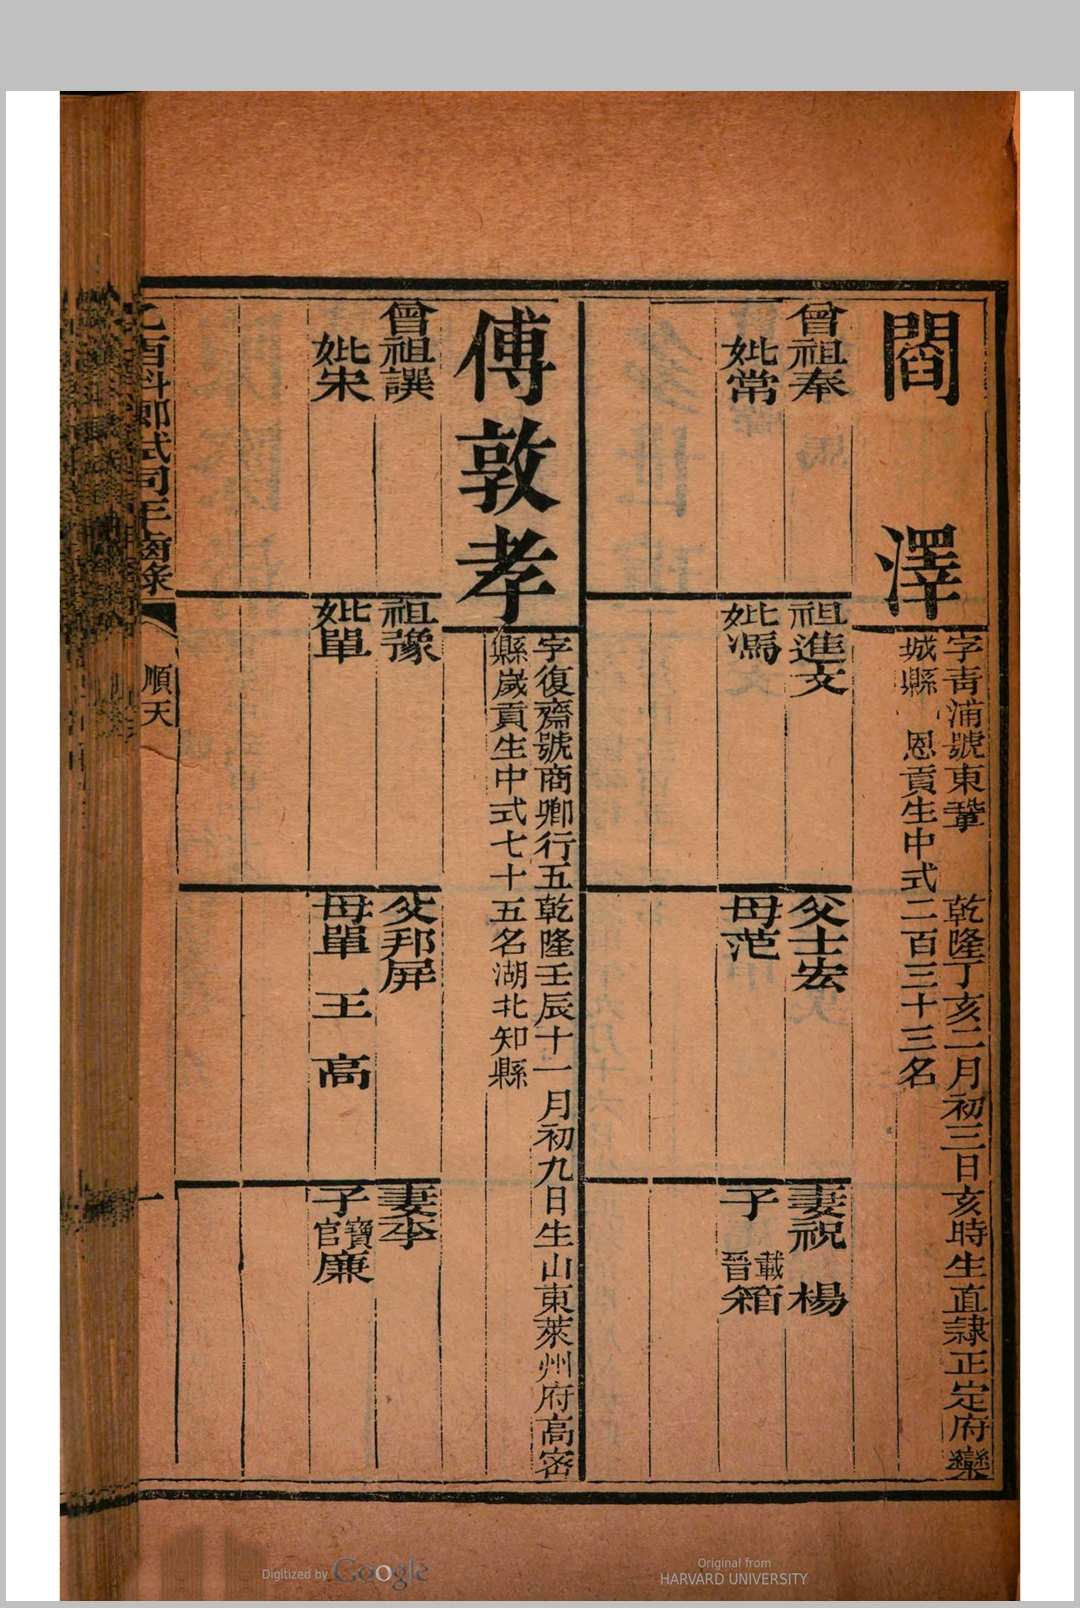 閻澤
字青浦號東鞏 乾隆丁亥二月初三日亥時生直隸正定府欒
城縣 恩貢生中式二百三十三名
曾祖奉
妣常
祖進文
妣馮
父士宏
母范
妻祝 楊
子載箱
晉
傅敦孝
字復齋號商卿行五乾隆壬辰十一月初九日生山東萊州府高密
縣歲貢生中式七十五名湖北知縣
曾祖譔
妣宋
祖豫
妣單
父邦屏
母單 王 高
妻李
子寶廉
官
乙酉科鄉試同年齒錄
順天
一
Digitized by Google
Original from
HARVARD UNIVERSITY